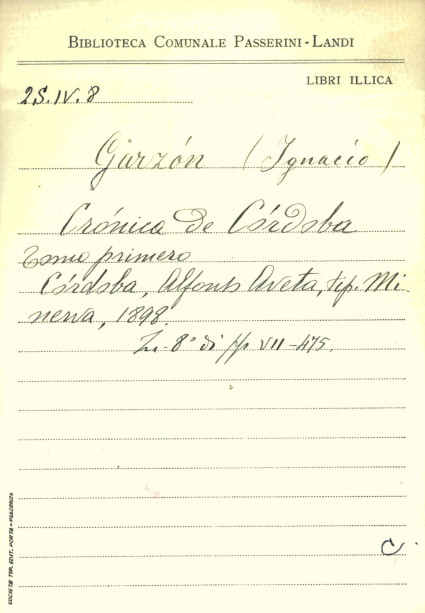 BIBLIOTECA COMUNALE PASSERINI-LANDI
LIBRI ILLICA
2S.IV.8
Garzón (Ignacio)
Crónica de Córdoba
Tomo primero
Córdoba, Alfonso Aveta, tip. Mi-
nerva, 1898.
In-8° di pp VII-475.
C
SOCIETÀ TIP. EDIT. PORTA - PIACENZA